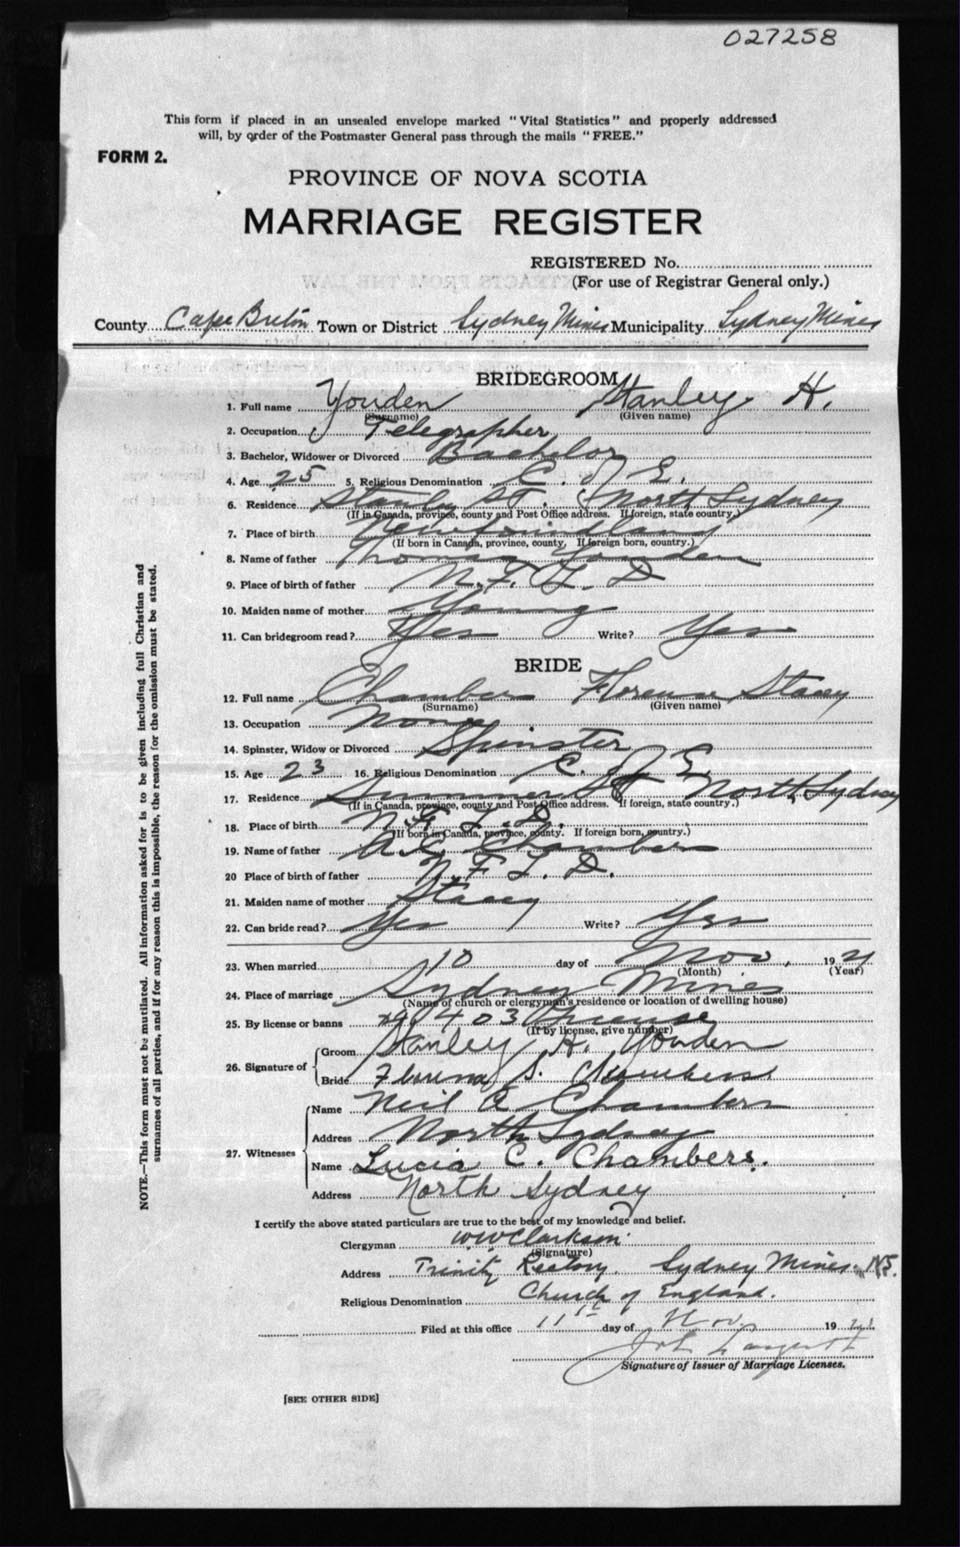 027258
This form if placed in an unsealed envelope marked "Vital Statistics" and properly addressed
will, by order of the Postmaster General pass through the mails "FREE."
FORM 2.
PROVINCE OF NOVA SCOTIA
MARRIAGE REGISTER
REGISTERED No.
(For use of Registrar General only.)
County Cape Breton Town or District Sydney Mines Municipality Sydney Mines
BRIDEGROOM
1. Full name Youden Stanley H.
(Surname) (Given name)
2. Occupation Telegrapher
3. Bachelor, Widower or Divorced Bachelor
4. Age 25 5. Religious Denomination C. of E.
6. Residence Stanley St. North Sydney
(If in Canada, province, county and Post Office address. If foreign, state country.)
7. Place of birth Newfoundland
(If born in Canada, province, county. If foreign born, country.)
8. Name of father Thomas Youden
9. Place of birth of father N.F.L.D
10. Maiden name of mother Young
11. Can bridegroom read? Yes Write? Yes
BRIDE
12. Full name Chambers Florence Stacey
(Surname) (Given name)
13. Occupation None
14. Spinster, Widow or Divorced Spinster
15. Age 23 16. Religious Denomination C. of E.
17. Residence Summer St North Sydney
(If in Canada, province, county and Post Office address. If foreign, state country.)
18. Place of birth N.F.L.D.
(If born in Canada, province, county. If foreign born, country.)
19. Name of father Chambers
20 Place of birth of father N.F.L.D.
21. Maiden name of mother Stacey
22. Can bride read? Yes Write? Yes
23. When married 10 day of Nov. 1921
(Month) (Year)
24. Place of marriage Sydney Mines
(Name of church or clergyman's residence or location of dwelling house)
25. By license or banns 403 License
(If by license, give number)
26. Signature of
Groom Stanley H. Youden
Bride S. Chambers
27. Witnesses
Name Neil Chambers
Address North Sydney
Name Lucia C. Chambers.
Address North Sydney
I certify the above stated particulars are true to the best of my knowledge and belief.
Clergyman W W Clarkson
(Signature)
Address Trinity Rectory. Sydney Mines. N.S.
Religious Denomination Church of England.
Filed at this office 11th day of Nov 1921
Signature of Issuer of Marriage Licenses.
[SEE OTHER SIDE]
NOTE.—This form must not be mutilated. All information asked for is to be given including full Christian and
surnames of all parties, and if for any reason this is impossible, the reason for the omission must be stated.